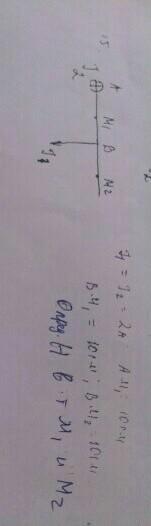 15.
A M1 B M2
J2
J1
J1 = J2 = 2A; AM1 10см
BM1 = 10см; BM2 = 10см
Опрд. H в т M1 и M2